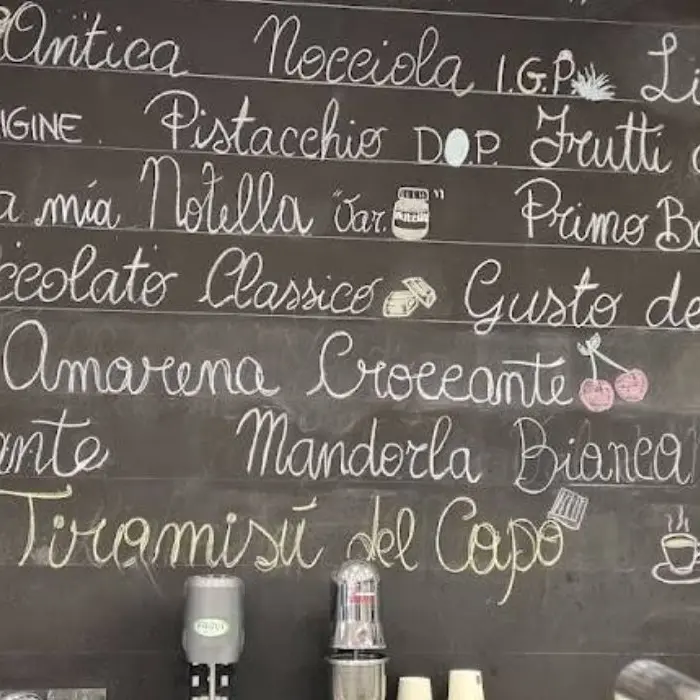 Antica Nocciola I.G.P. Li
IGINE. Pistacchio D.O.P. Frutti
a mia Notella "Var. " Primo Ba
ccolato Classico Gusto de
Amarena Croccante
ante Mandorla Bianca
Tiramisú del Capo